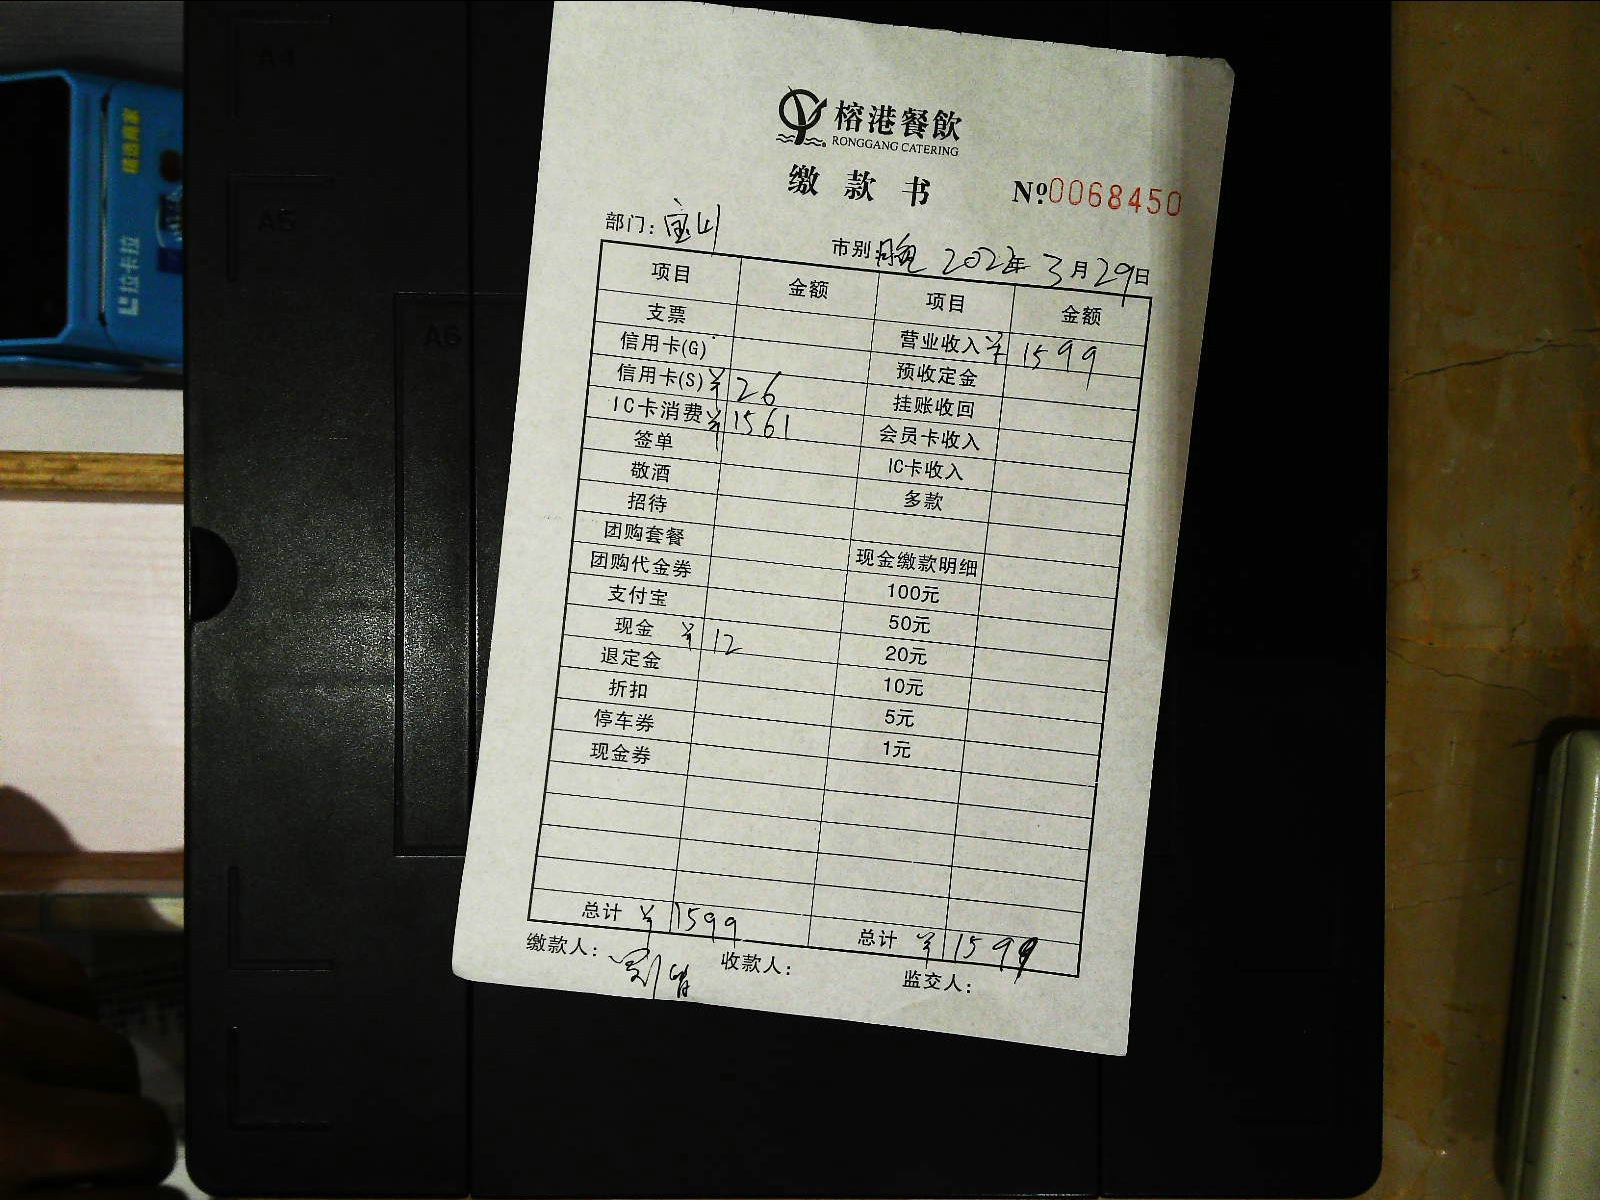 榕港餐飲
RONGGANG CATERING
缴款书 Nº0068450
部门:宝山 市别 2022年3月29日
项目 金额 项目 金额
支票 营业收入 ¥1599
信用卡(G) 预收定金
信用卡(S) ¥26 挂账收回
IC卡消费 ¥1561 会员卡收入
签单 IC卡收入
敬酒 多款
招待
团购套餐 现金缴款明细
团购代金券 100元
支付宝 50元
现金 ¥12 20元
退定金 10元
折扣 5元
停车券 1元
现金券
总计 ¥1599 总计 ¥1599
缴款人: 收款人: 监交人:
A4
A5
A6
拉卡拉